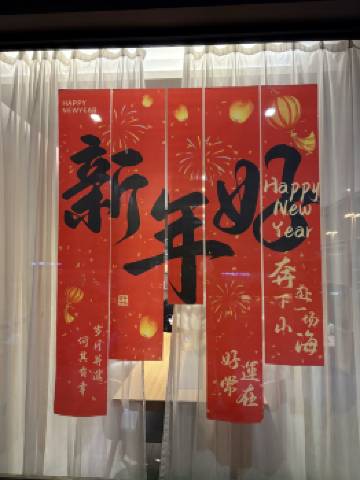 HAPPY
NEWYEAR
新年好
Happy
New
Year
奔赴
下一场
山海
好運
常在
岁月并進
何其有幸